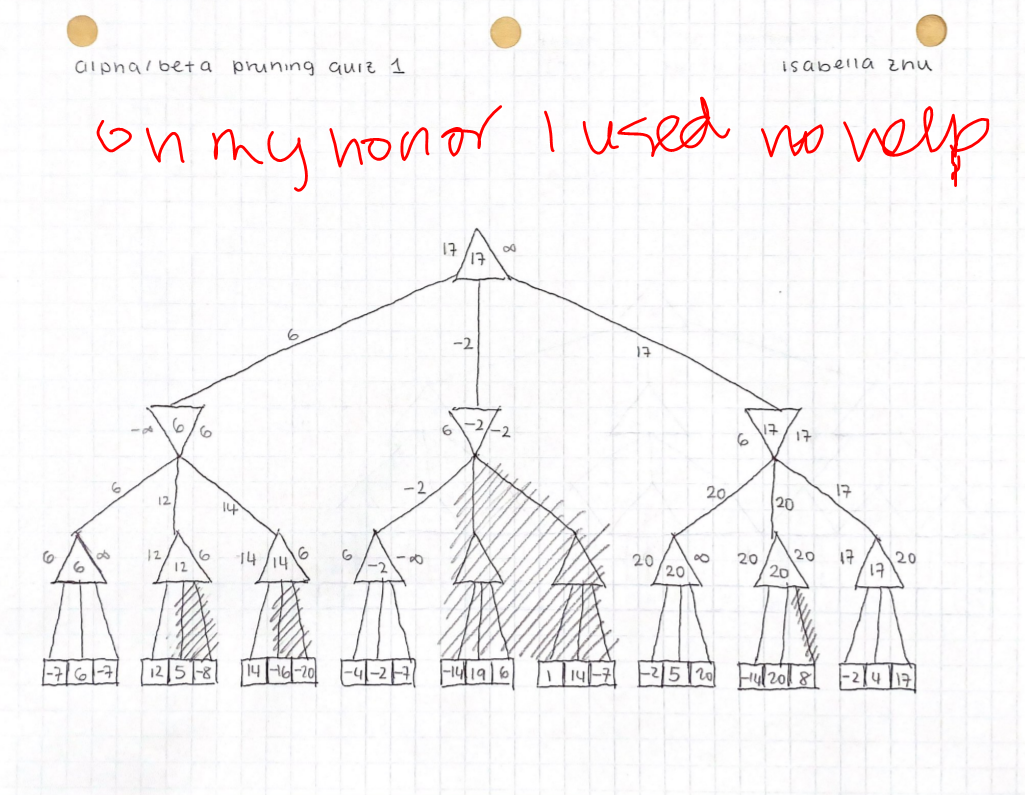 alpha/beta pruning quiz 1
isabella zhu
on my honor I used no help
17 17 ∞
6 -2 17
-∞ 6 6 6 -2 -2 6 17 17
6 12 14 -2 20 20 17
6 6 ∞ 12 12 6 14 14 6 6 -2 -∞ 20 20 ∞ 20 20 20 17 17 20
-7 6 -7 12 5 -8 14 -16 -20 -4 -2 -7 -14 19 6 1 14 -7 -2 5 20 -14 20 8 -2 4 17